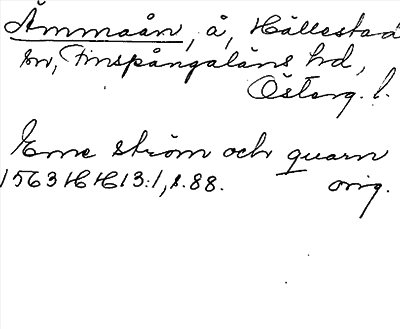 Ämmaån, å, Hällestad
sn, Finspångaläns hd,
Österg. l.
Eme ström och quarn
1563 HH 13:1, s. 88. orig.